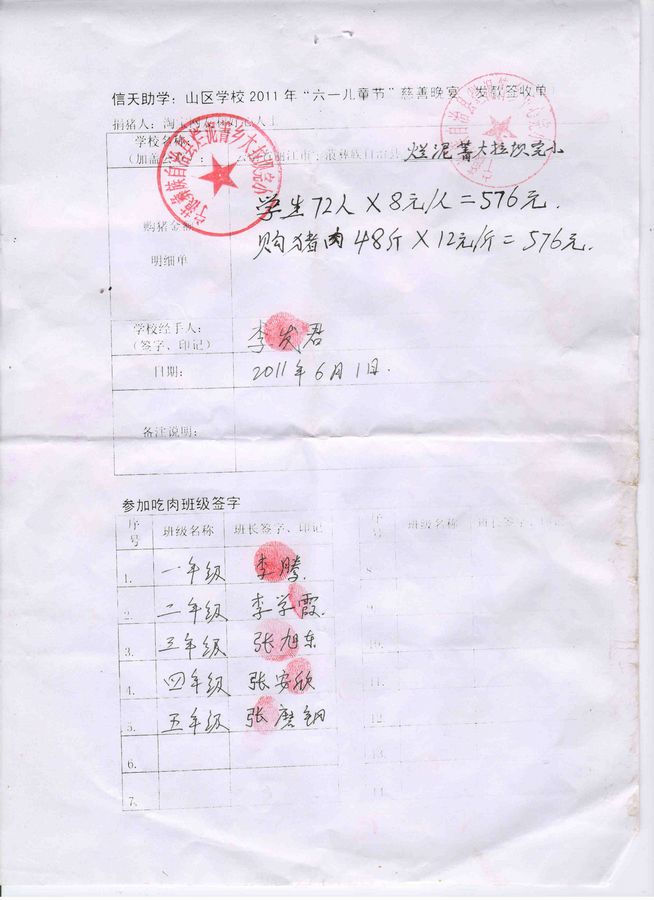 信天助学：山区学校2011年“六一儿童节”慈善晚宴 发款签收单
捐猪人：淘宝网
学校名称：
（加盖公章）： 丽江市宁蒗彝族自治县 烂泥箐大拉坝完小
购猪金额
明细单
学生72人×8元/人=576元.
购猪肉48斤×12元/斤=576元.
学校经手人：
（签字、印记）
李发君
日期：
2011年6月1日.
备注说明：
参加吃肉班级签字
序号 班级名称 班长签字、印记
1. 一年级 李腾.
2. 二年级 李学霞.
3. 三年级 张旭东
4. 四年级 张安欣
5. 五年级 张磨钢
6.
7.
序号 班级名称 班长签字、印记
8
9.
10.
11.
12
13.
14.